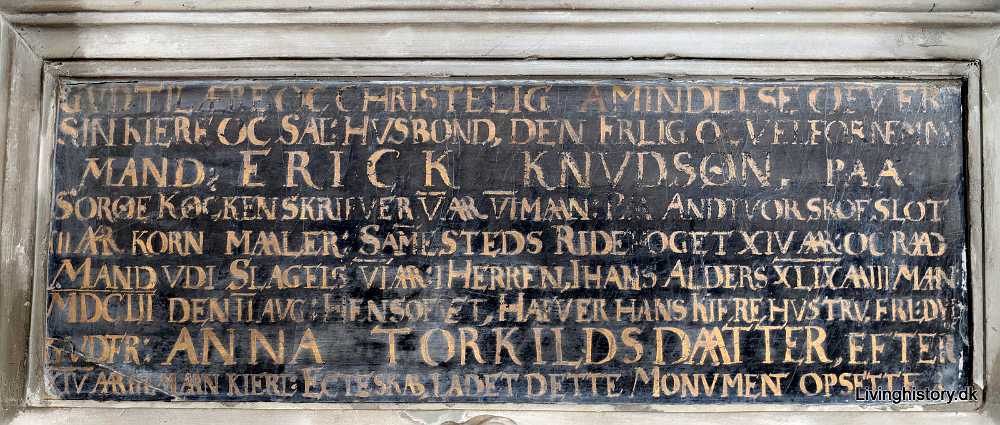 GVD TIL ÆRE OC CHRISTELIG AMINDELSE OFVER
SIN KIERE OC SAL: HVSBOND, DEN ERLIG OC VELFORNEMM
MAND: ERICK KNVDSØN, PAA
SORØE KØCKENSKRIFVER V AAR VI MAAN: PAA ANDTVORSKOF SLOT
III AAR KORN MAALER: SAMESTEDS RIDEFOGET XIV AAR OC RAAD
MAND VDI SLAGELS VI AAR I HERREN, I HANS ALDERS XLIX AAR III MAN
MDCLII DEN II AVG: HENSOFVET, HAFVER HANS KIERE HVSTRV, ERL: DYD
GVDFR: ANNA TORKILDSDAATTER, EFTER
XIV AAR III MAAN KIERL: ECTESKAB, LADET DETTE MONVMENT OPSETTE
Livinghistory.dk